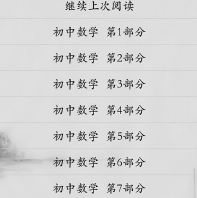 继续上次阅读
初中数学 第1部分
初中数学 第2部分
初中数学 第3部分
初中数学 第4部分
初中数学 第5部分
初中数学 第6部分
初中数学 第7部分